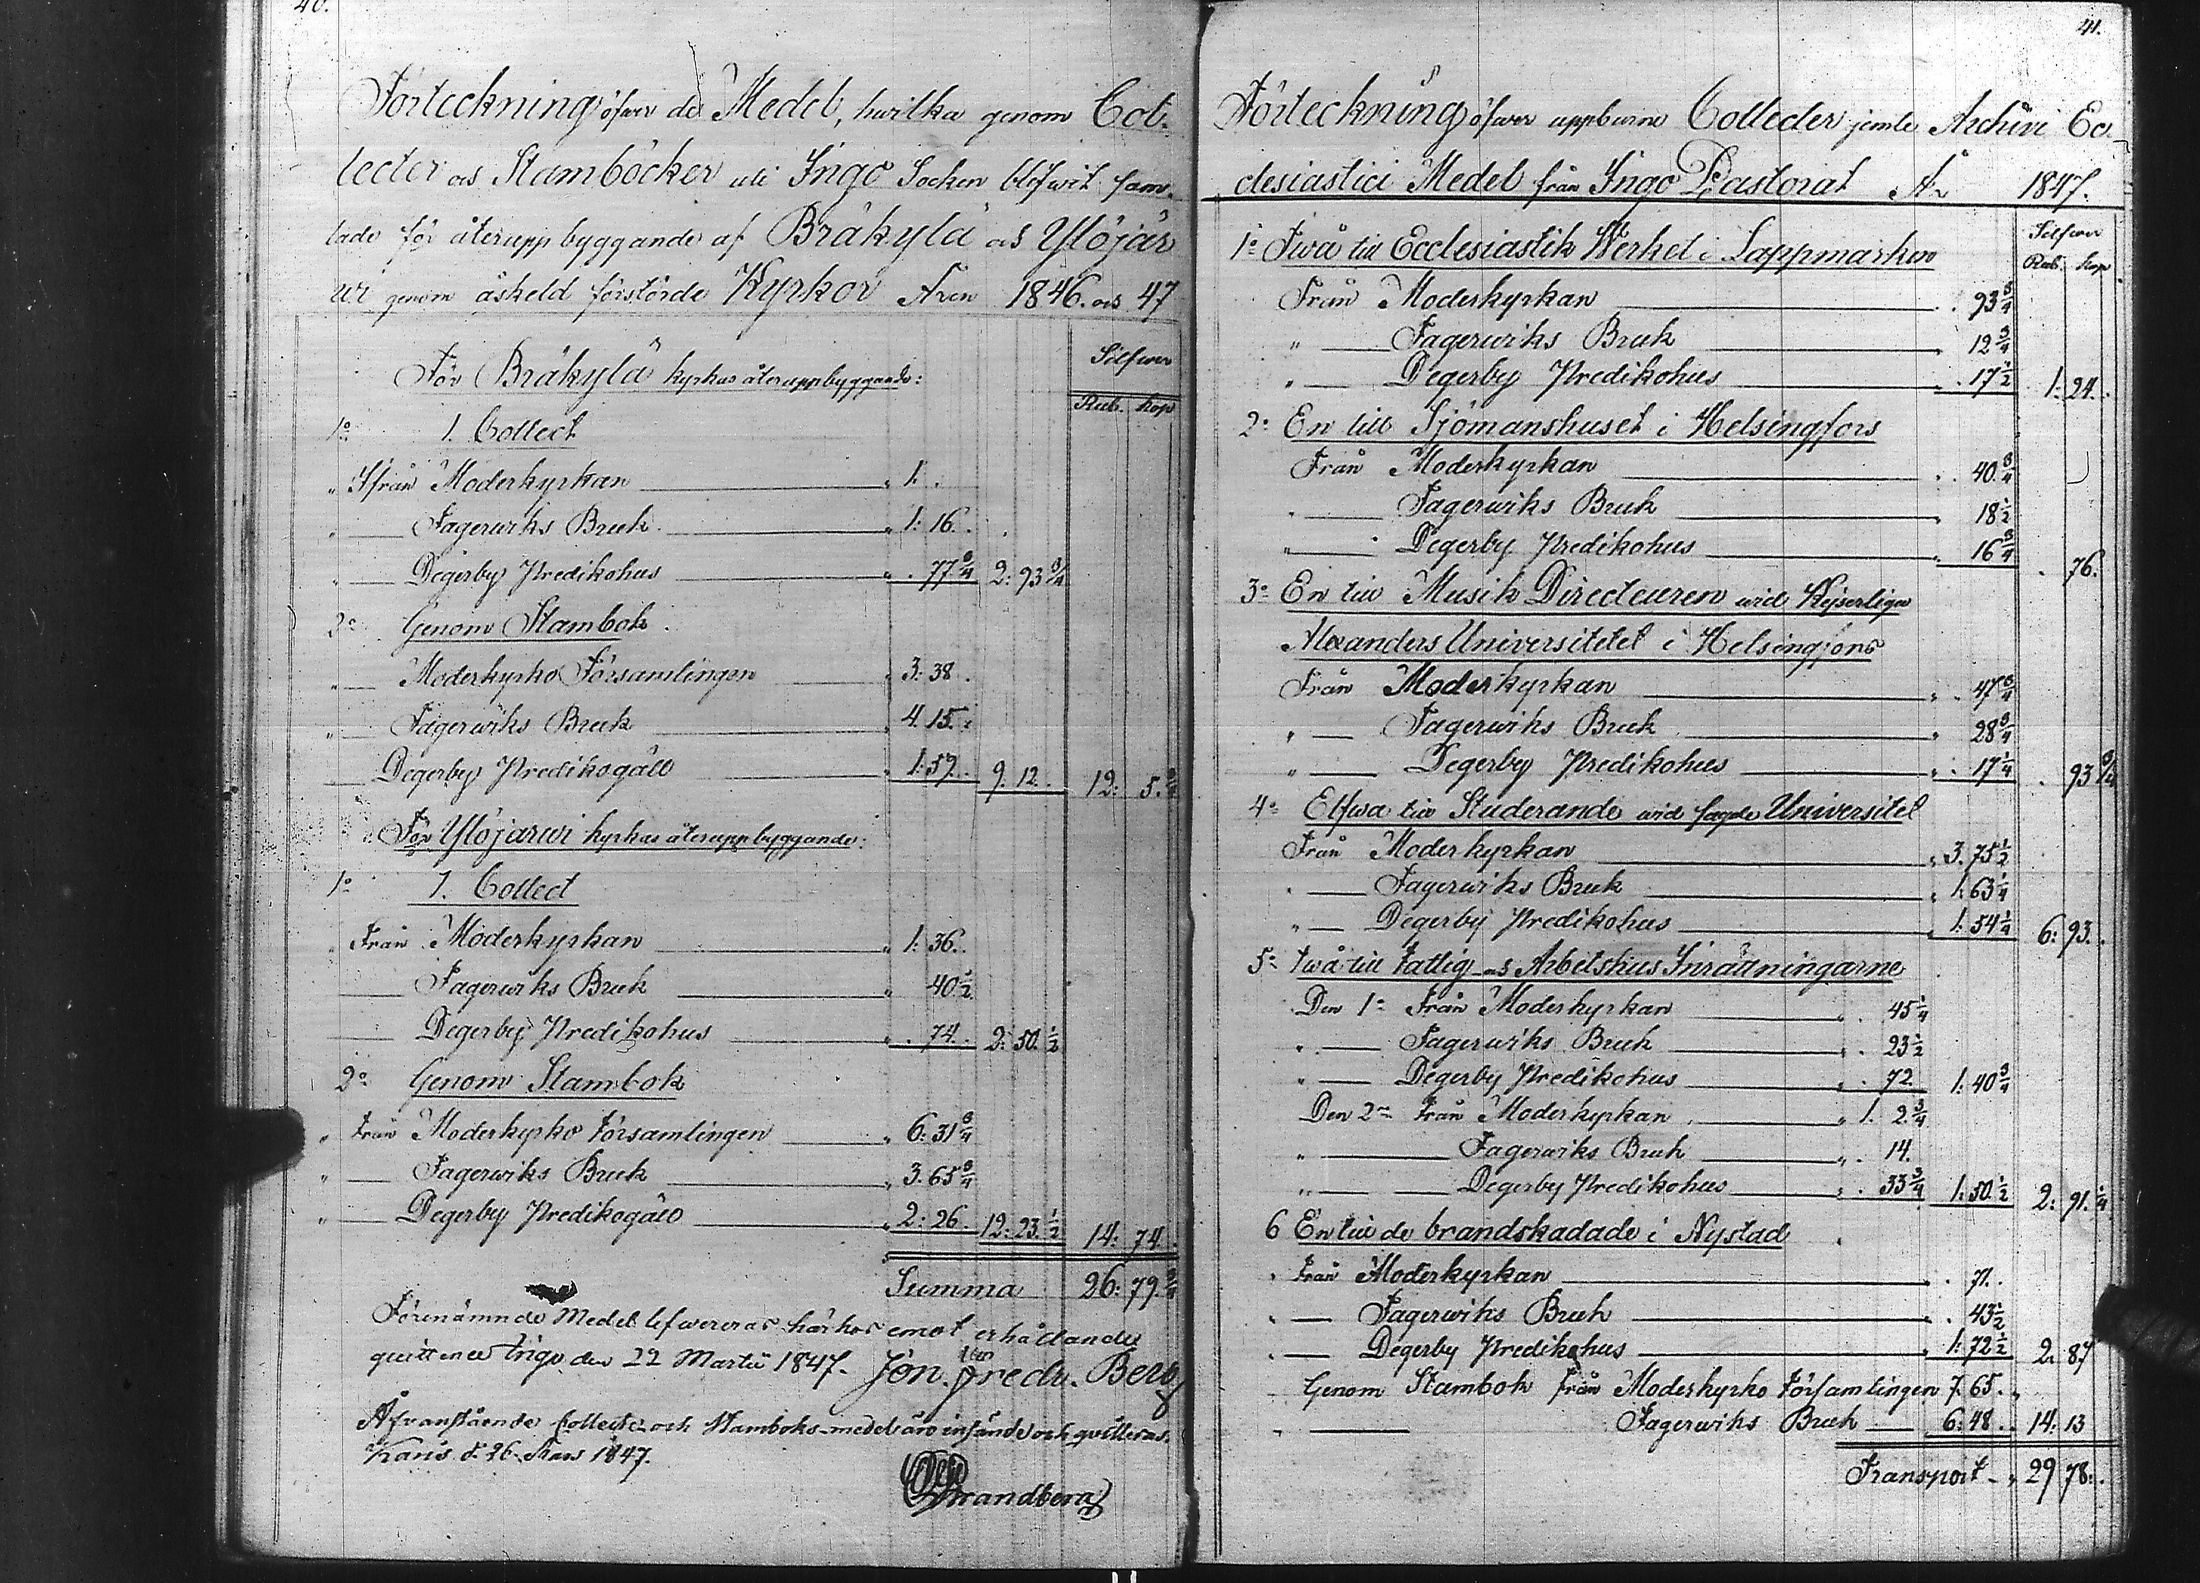 40.
Förteckning öfwer de Medel, hwilka genom Col-
lecter och Stamböcker uti Ingo Socken blifwit sam-
lade för återuppbyggande af Bräkylä och Ylöjär
wi genom åskeld förstörde Kyrkor Åren 1846. och 47
Silfwer
För Bräkylä kyrkas återuppbyggande:
Rub. kop
1o 1. Collect
" Ifrån Moderkyrkan " 1. .
" Fagerwiks Bruk " 1: 16.
" Degerby Predikohus " . 77 3/4 2: 93 3/4
2o Genom Stambok.
" Moderkyrko Församlingen " 3: 38.
" Fagerwiks Bruk " 4. 15.
Degerby Predikogäll " 1: 59. 9. 12. 12: 5. 3/4
För Ylöjärwi kyrkas återuppbyggande:
1o 1. Collect
Från Moderkyrkan " 1: 36.
Fagerwiks Bruk " 40 1/2
Degerby Predikohus " . 74. 2: 50. 1/2
2o Genom Stambok
" Från Moderkyrko Församlingen " 6: 31 3/4
" Fagerwiks Bruk " 3. 65 3/4
" Degerby Predikogäll " 2: 26. 12: 23. 1/2 14: 74.
Summa 26: 79. 3/4
Förenämnde Medel lefwereras härhos emot erhållande
quittence Ingo den 22 Martii 1847. Jon. Fredr. Berg
Åfvanstående Collecter och Stamboks-medel äro insände och qvitteras.
Karis d. 26 Mars 1847.
Strandberg
41.
Förteckning öfwer uppburne Collecter jemte Archivi Ec-
clesiastici Medel från Ingo Pastorat År 1847.
Silfwer
1o Twå till Ecclesiastik Werket i Lappmarken Rub. kop
Från Moderkyrkan . 93 3/4
" Fagerwiks Bruk . 12 3/4
" Degerby Predikohus . 17 1/2 1: 24.
2o En till Sjömanshuset i Helsingfors
Från Moderkyrkan . . 40. 3/4
" Fagerwiks Bruk " 18 1/2
" Degerby Predikohus " 16 3/4 . 76.
3o En till Musik Directeuren wid Kejserliga
Alexanders Universitetet i Helsingfors
Från Moderkyrkan " . 47 3/4
" Fagerwiks Bruk " 28 3/4
" Degerby Predikohus " . 17 1/4 . 93 3/4
4o Elfwa till Studerande wid sagde Universitet
Från Moderkyrkan " 3. 75 1/2
" Fagerwiks Bruk " 1: 63 1/4
" Degerby Predikohus " 1: 54 1/4 6: 93.
5o twå till Fattig och Arbetshus Inrättningarne
Den 1a Från Moderkyrkan " . 45 1/4
" Fagerwiks Bruk " . 23 1/2
" Degerby Predikohus " . 72. 1: 40 3/4
Den 2ra Från Moderkyrkan " 1. 2. 3/4
" Fagerwiks Bruk " . 14.
" Degerby Predikohus " . 33 3/4 1: 50. 1/2 2: 91. 1/4
6 En till de brandskadade i Nystad
" Från Moderkyrkan " . 71.
" Fagerwiks Bruk " . 43 1/2
" Degerby Predikohus " 1: 72 1/2 2. 87
Genom Stambok från Moderkyrko Församlingen 7. 65.
" Fagerwiks Bruk 6: 48. 14: 13
Transport " 29 78.